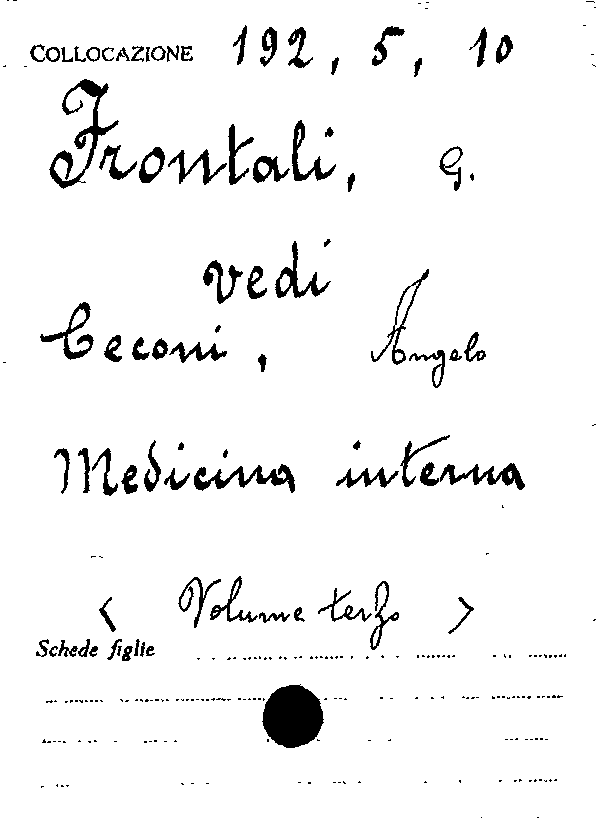 COLLOCAZIONE 192, 5, 10
Frontali, G.
vedi
Ceconi, Angelo
Medicina interna
< Volume terzo >
Schede figlie